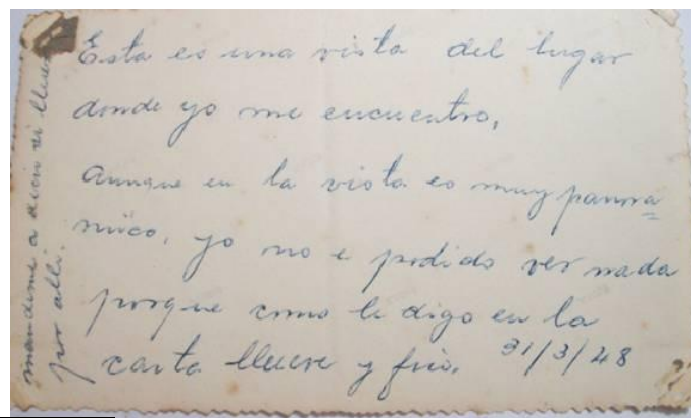 Esta es una vista del lugar
donde yo me encuentro,
aunque en la vista es muy panora=
mico, yo no e podido ver nada
porque como le digo en la
carta llueve y frio. 31/3/48
mandeme a decir si llueve
por alli.